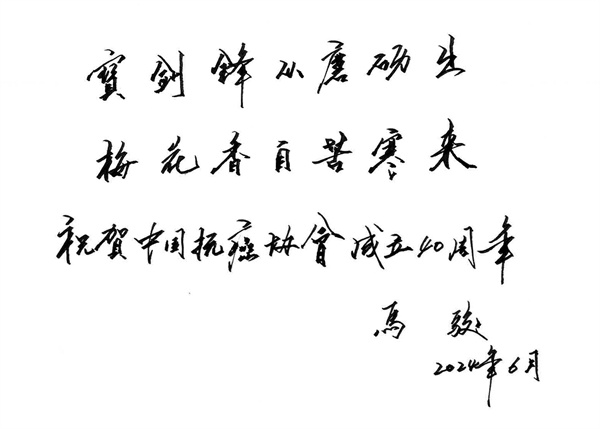 寶劍鋒从磨砺生
梅花香自苦寒来
祝賀中国抗癌协會成立40周年
馬駿
2024年6月